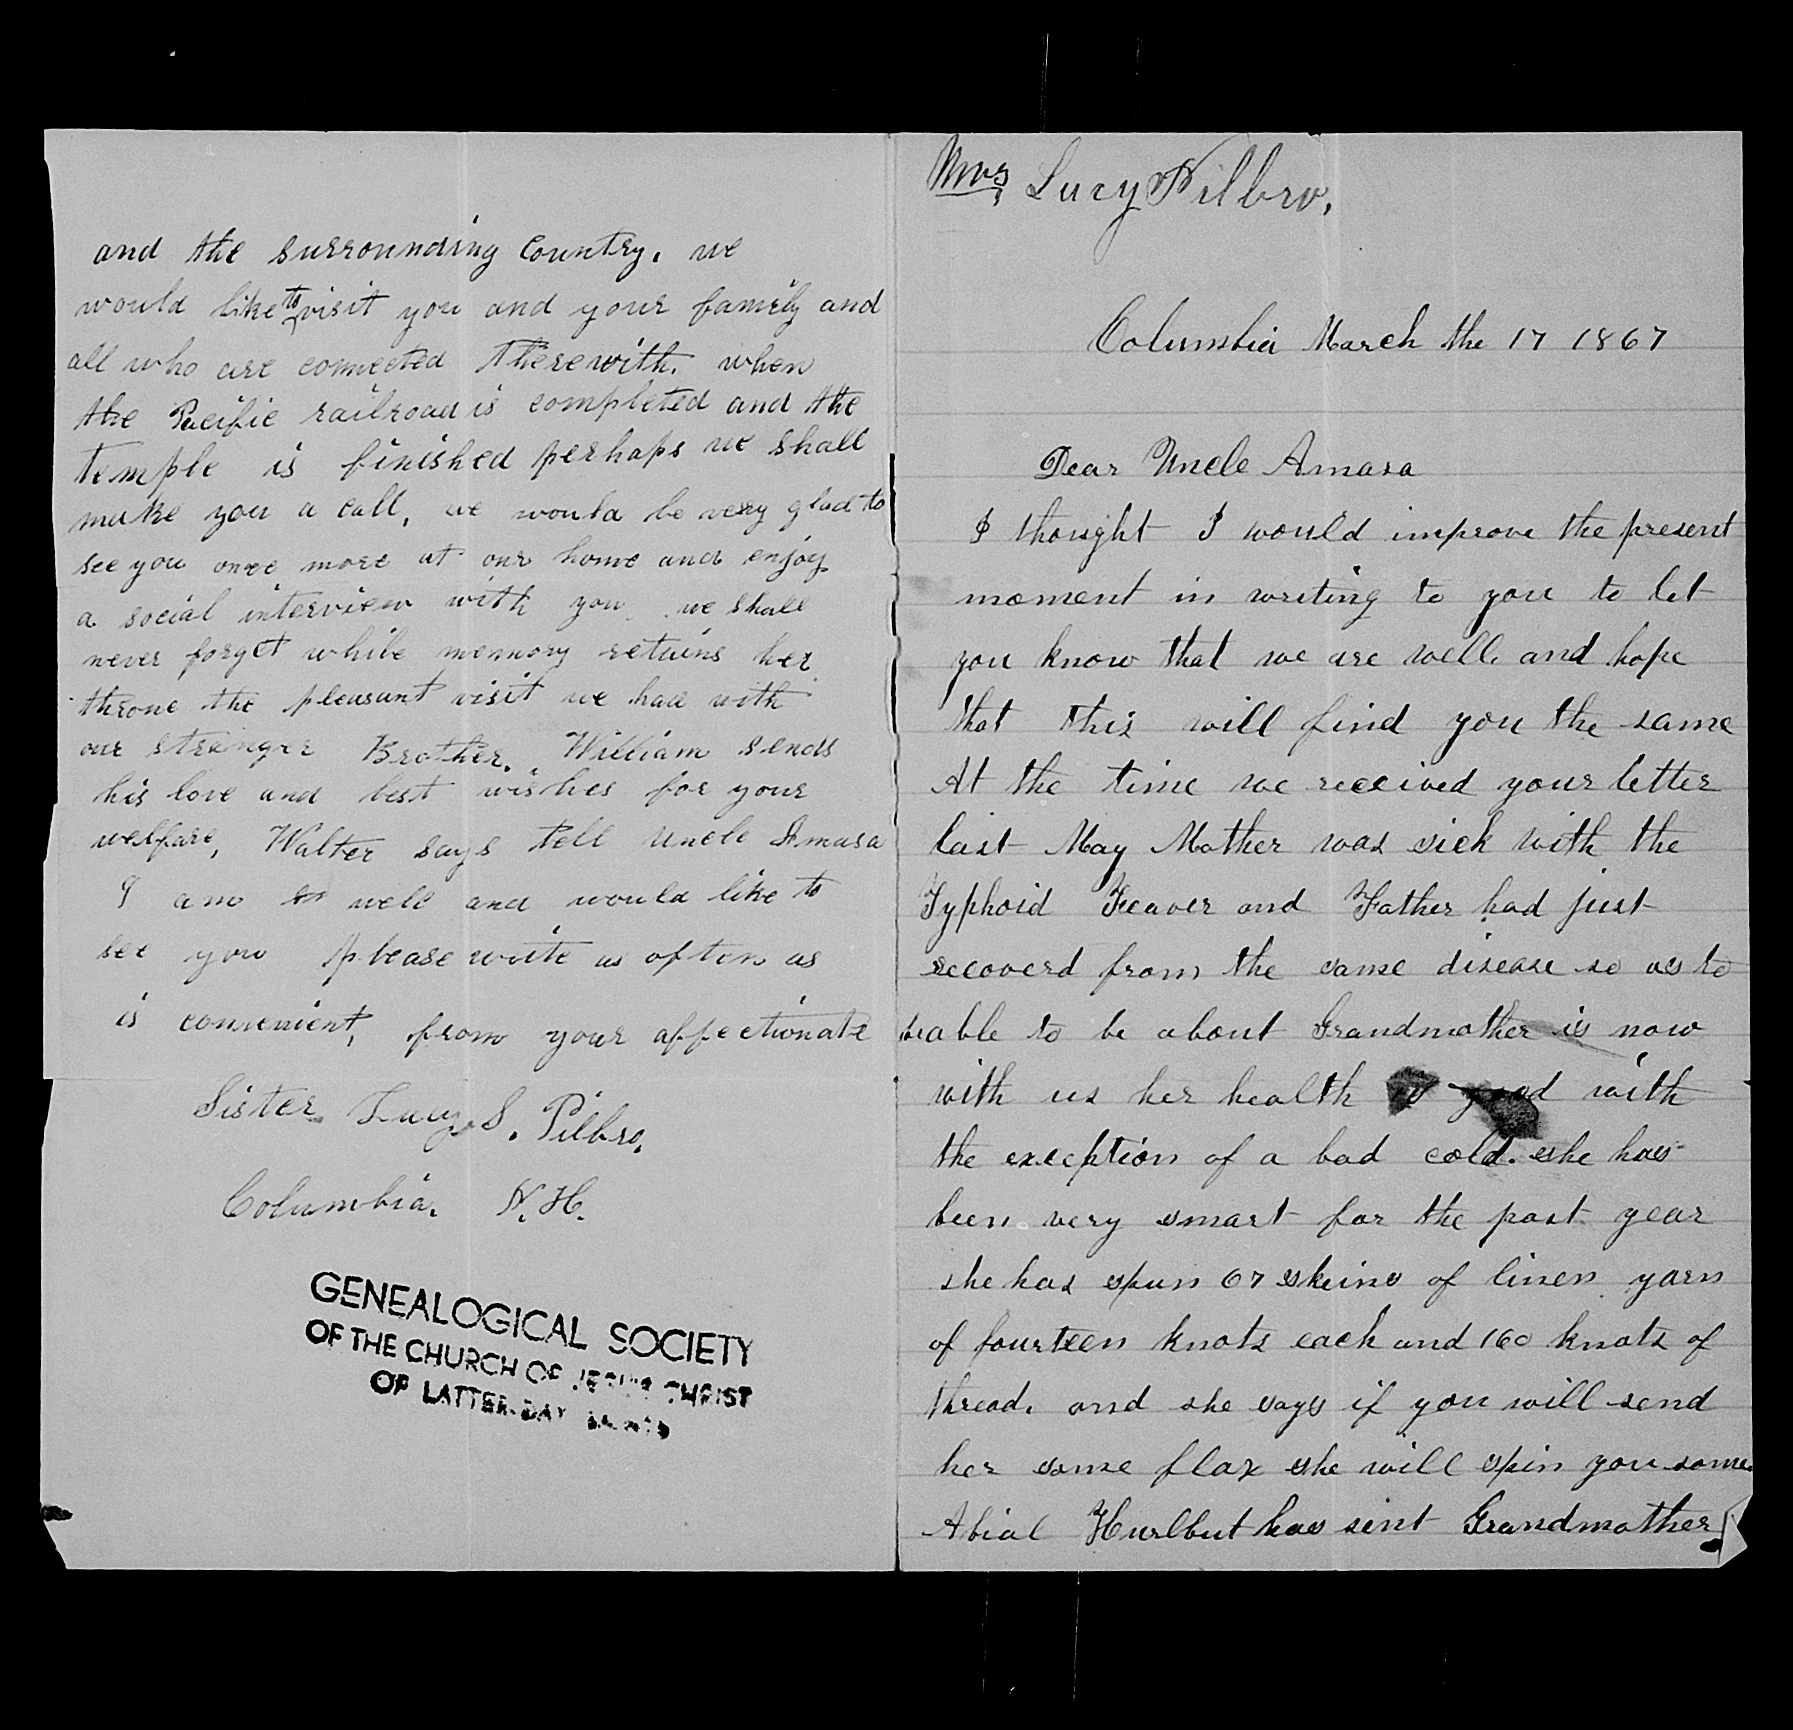 and the surrounding country. we
would like to visit you and your family and
all who are connected therewith. when
the Pacific railroad is completed and the
temple is finished perhaps we shall
make you a call, we would be very glad to
see you once more at our home and enjoy
a social interview with you we shall
never forget while memory retains her
throne the pleasant visit we had with
our stranger Brother. William sends
his love and best wishes for your
welfare, Walter says tell Uncle Amasa
I am well and would like to
see you please write as often as
is convenient, from your affectionate
Sister Lucy S. Pilbro.
Columbia. N.H.
GENEALOGICAL SOCIETY
OF THE CHURCH OF JESUS CHRIST
OF LATTER-DAY SAINTS
Mrs Lucy Pilbro.
Columbia March the 17 1867
Dear Uncle Amasa
I thought I would improve the present
moment in writing to you to let
you know that we are well. and hope
that this will find you the same
At the time we received your letter
last May Mother was sick with the
Typhoid Feaver and Father had just
recoverd from the same disease so as to
beable to be about Grandmother is now
with us her health is good with
the exception of a bad cold. she has
been very smart for the past year
she has spun 67 skeins of linen yarn
of fourteen knots each and 160 knots of
thread. and she says if you will send
her some flax she will spin you some.
Abial Hurlbut has sent Grandmother